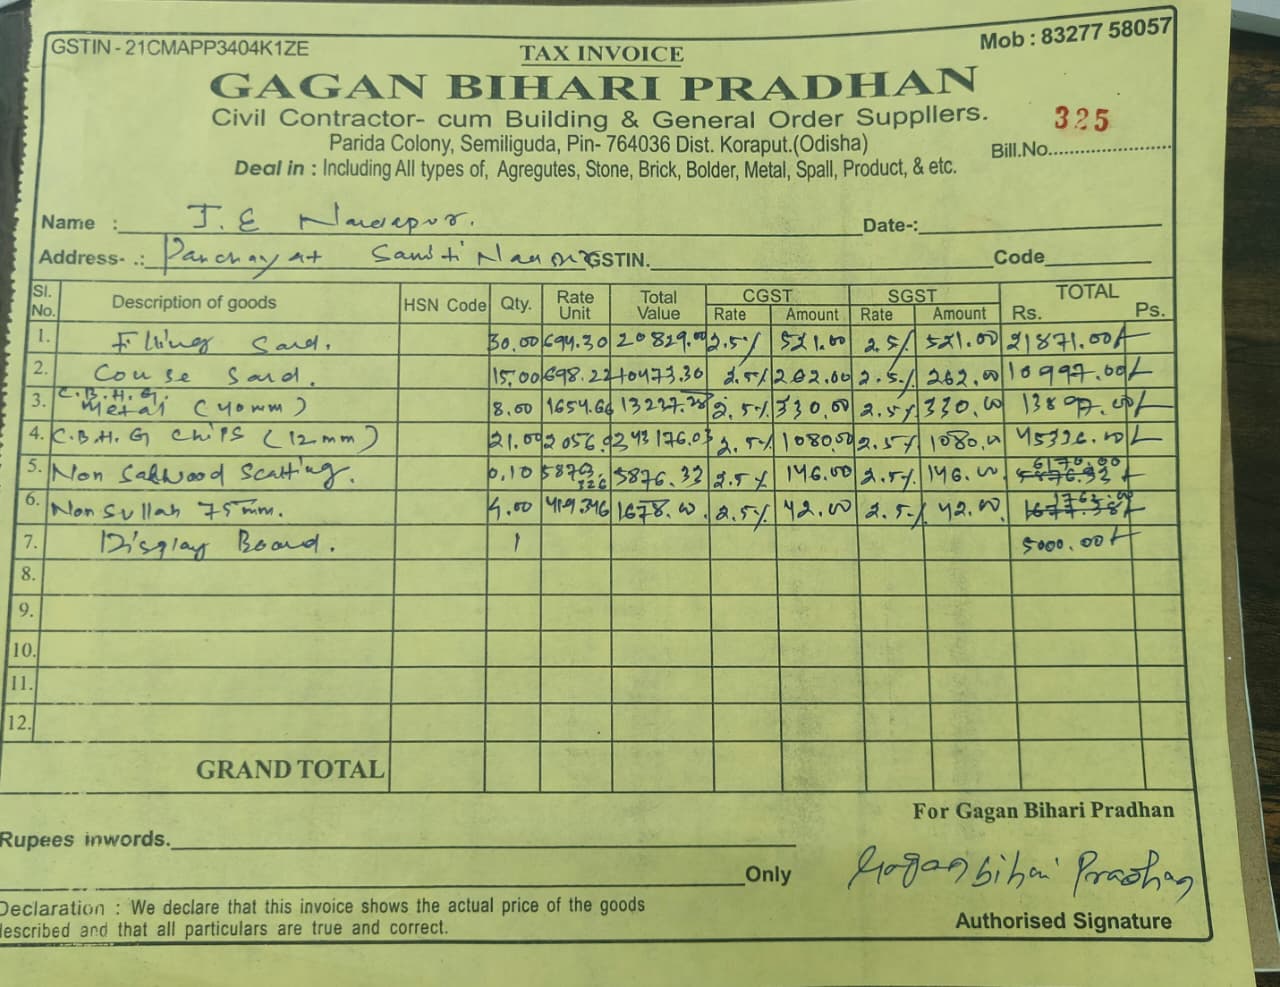 GSTIN - 21CMAPP3404K1ZE
TAX INVOICE
Mob : 83277 58057
GAGAN BIHARI PRADHAN
Civil Contractor- cum Building & General Order Suppllers.
325
Parida Colony, Semiliguda, Pin- 764036 Dist. Koraput.(Odisha)
Bill.No.
Deal in : Including All types of, Agregutes, Stone, Brick, Bolder, Metal, Spall, Product, & etc.
Name : J.E Nandapur.
Date-:
Address- .: Panchayat Samiti GSTIN. Code
Sl. No. Description of goods HSN Code Qty. Rate Unit Total Value CGST Rate Amount SGST Rate Amount TOTAL Rs. Ps.
1. Filling Sand. 30.00 694.30 20829.00 2.5% 521.00 2.5% 521.00 21871.00
2. Couse Sand. 15.00 698.22 10473.30 2.5% 262.00 2.5% 262.00 10997.00
3. C.B.H.G. Metal (40mm) 8.00 1654.66 13237.28 2.5% 330.00 2.5% 330.00 13897.00
4. C.B.H.G Chips (12mm) 21.00 2056.0 43176.03 2.5% 1080.00 2.5% 1080.00 45336.00
5. Non 0.10 5876.33 2.5% 146.00 2.5% 146.00 6170.00
6. Non Sullah 75mm. 4.00 419.346 1678.00 2.5% 42.00 2.5% 42.00 1762.00
7. Display Board. 1 5000.00
8.
9.
10.
11.
12.
GRAND TOTAL
For Gagan Bihari Pradhan
Rupees inwords.
Only
Gagan bihari Pradhan
Declaration : We declare that this invoice shows the actual price of the goods
described and that all particulars are true and correct.
Authorised Signature